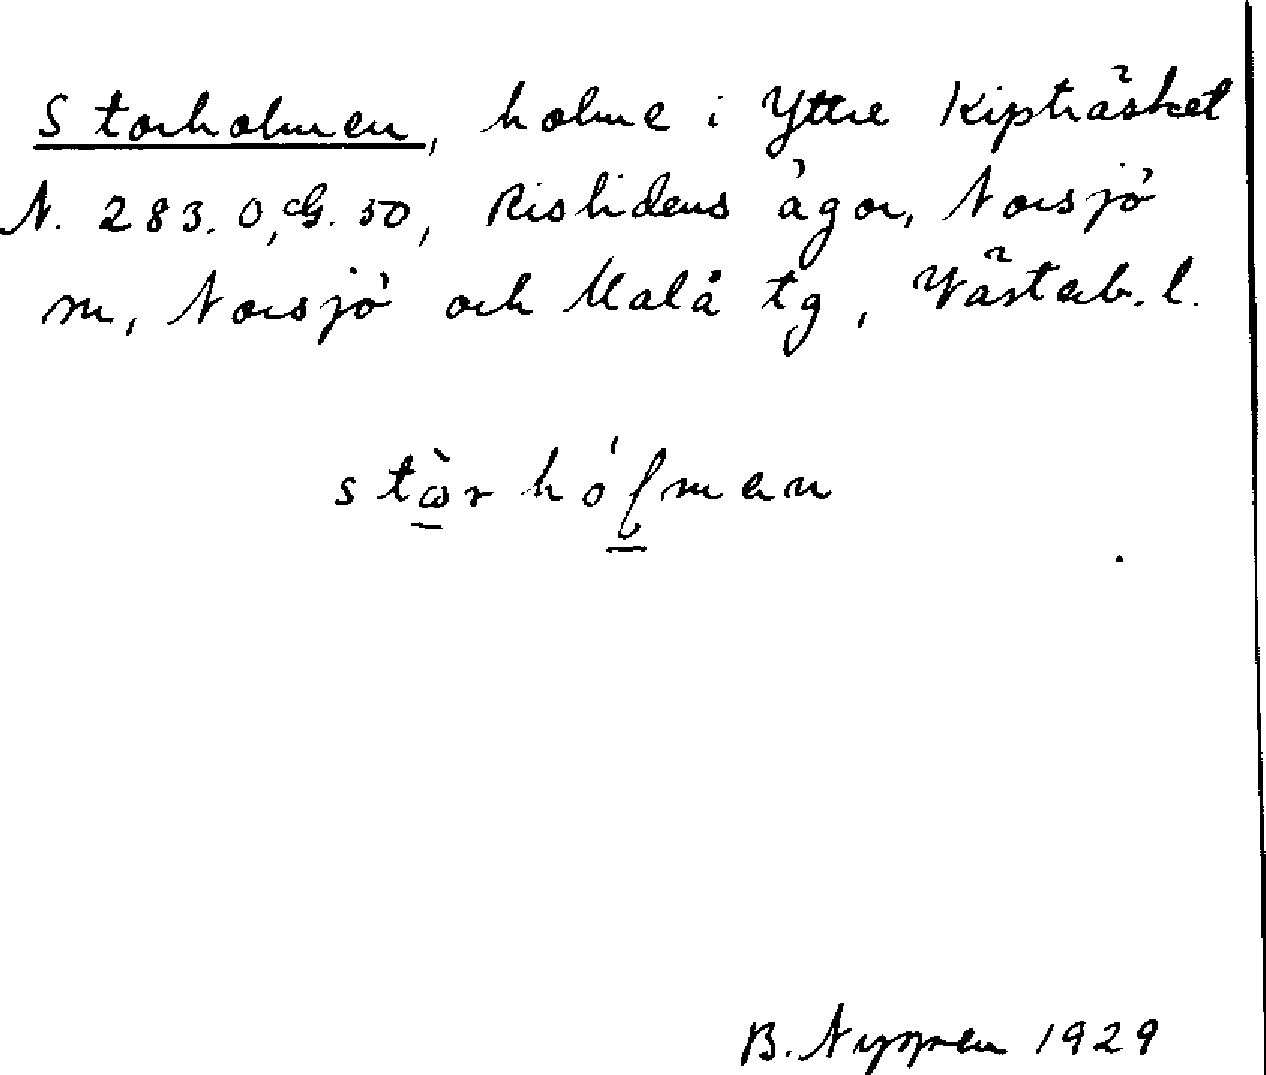 Storholmen, holme i Yttre Kipträsket
N. 283. 0, G. 50, Rislidens ägor, Norsjö
sn, Norsjö och Malå tg, Västerb. l.
B. Nygren 1929